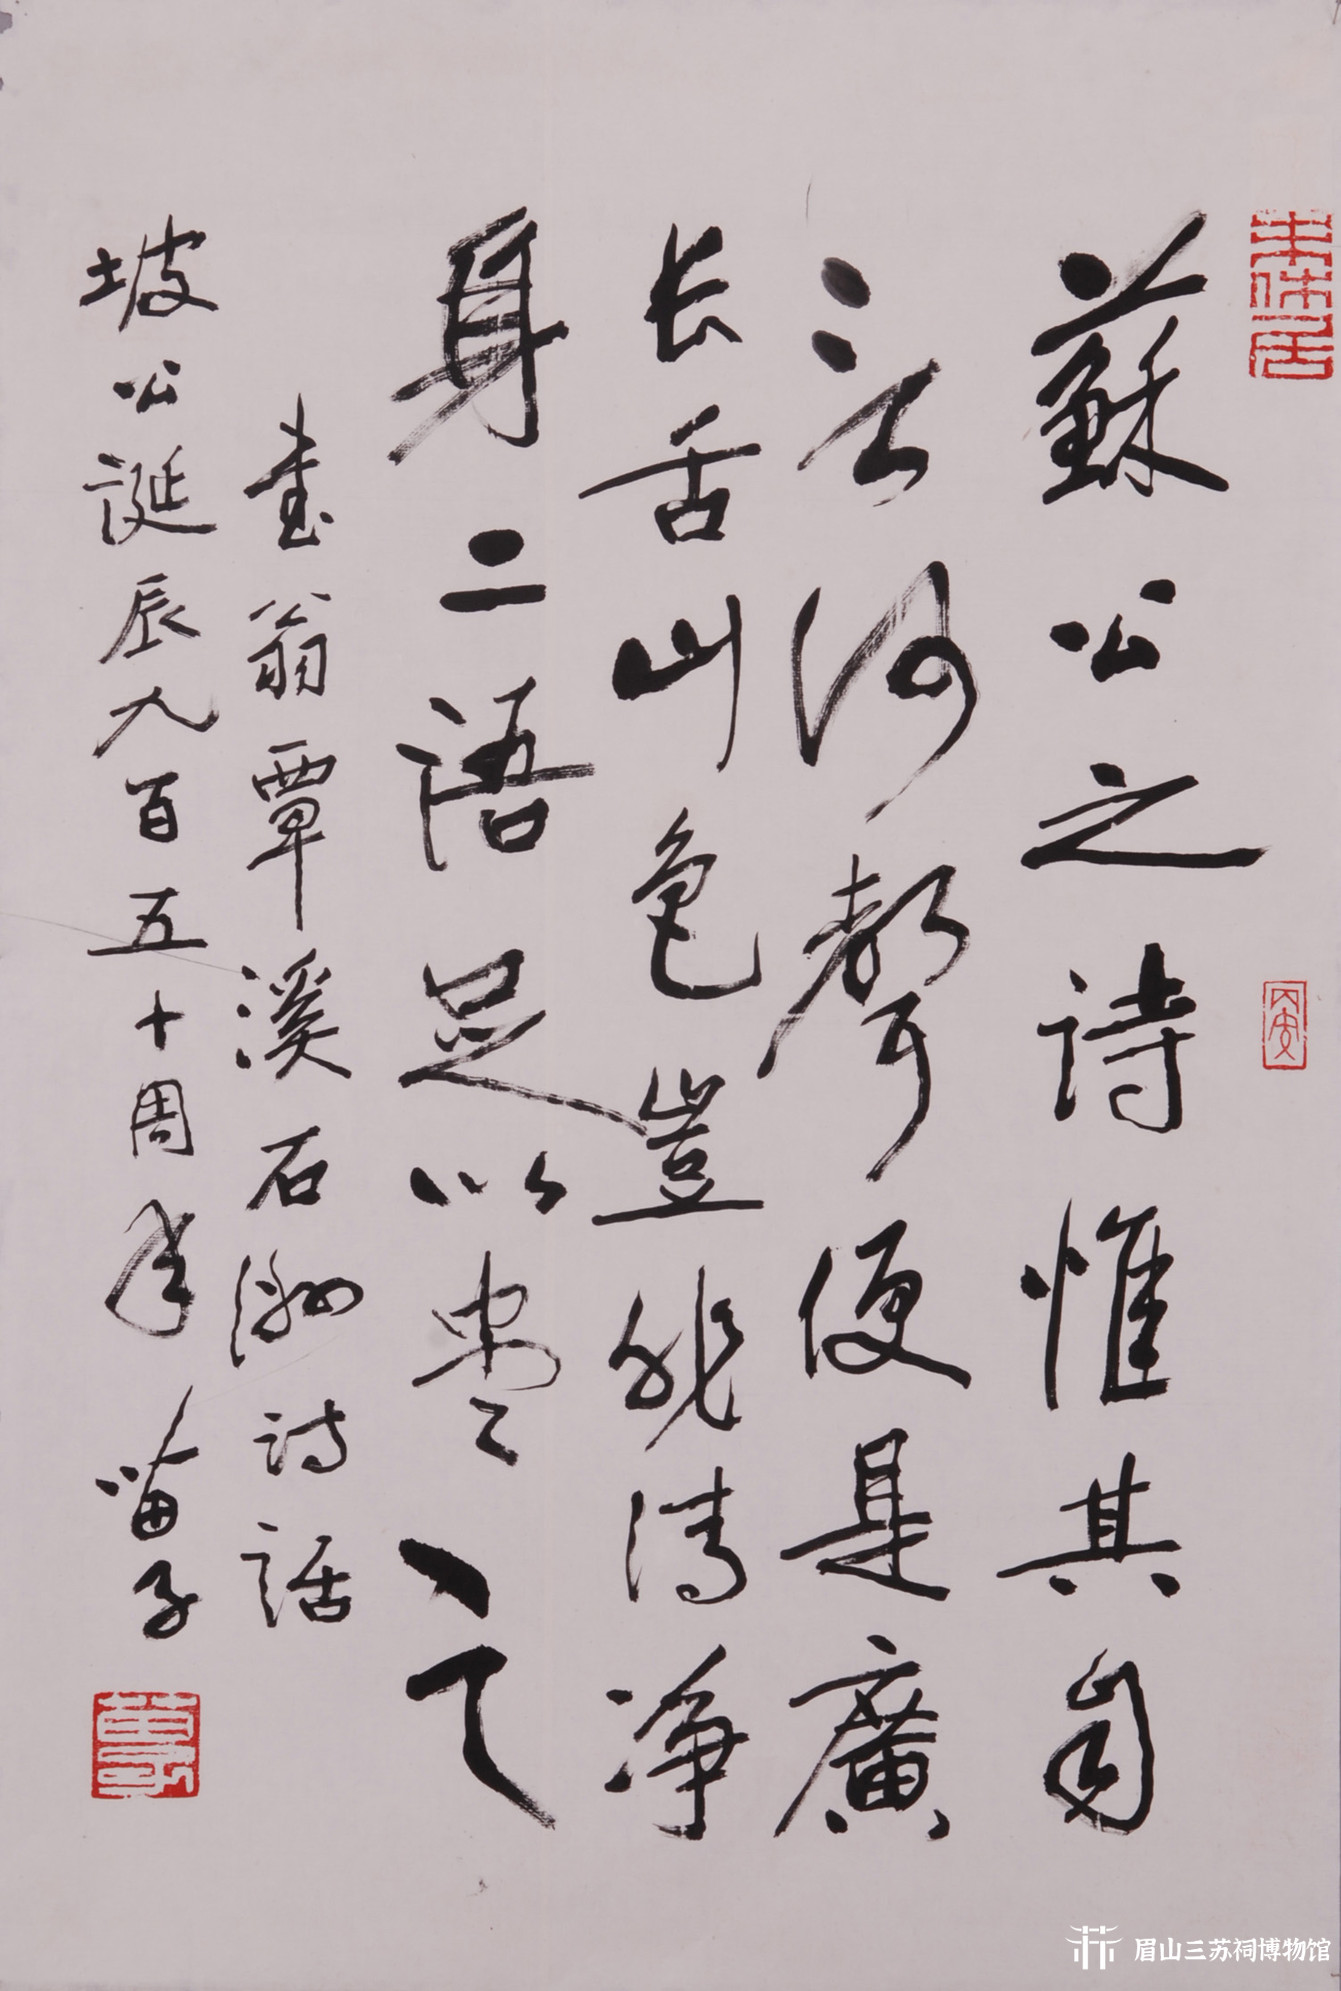 蘇公之詩惟其自
言河聲便是廣
长舌山色豈非清净
身二語足以尽之
书翁覃溪石洲诗話
坡公誕辰九百五十周年 苗子
眉山三苏祠博物馆